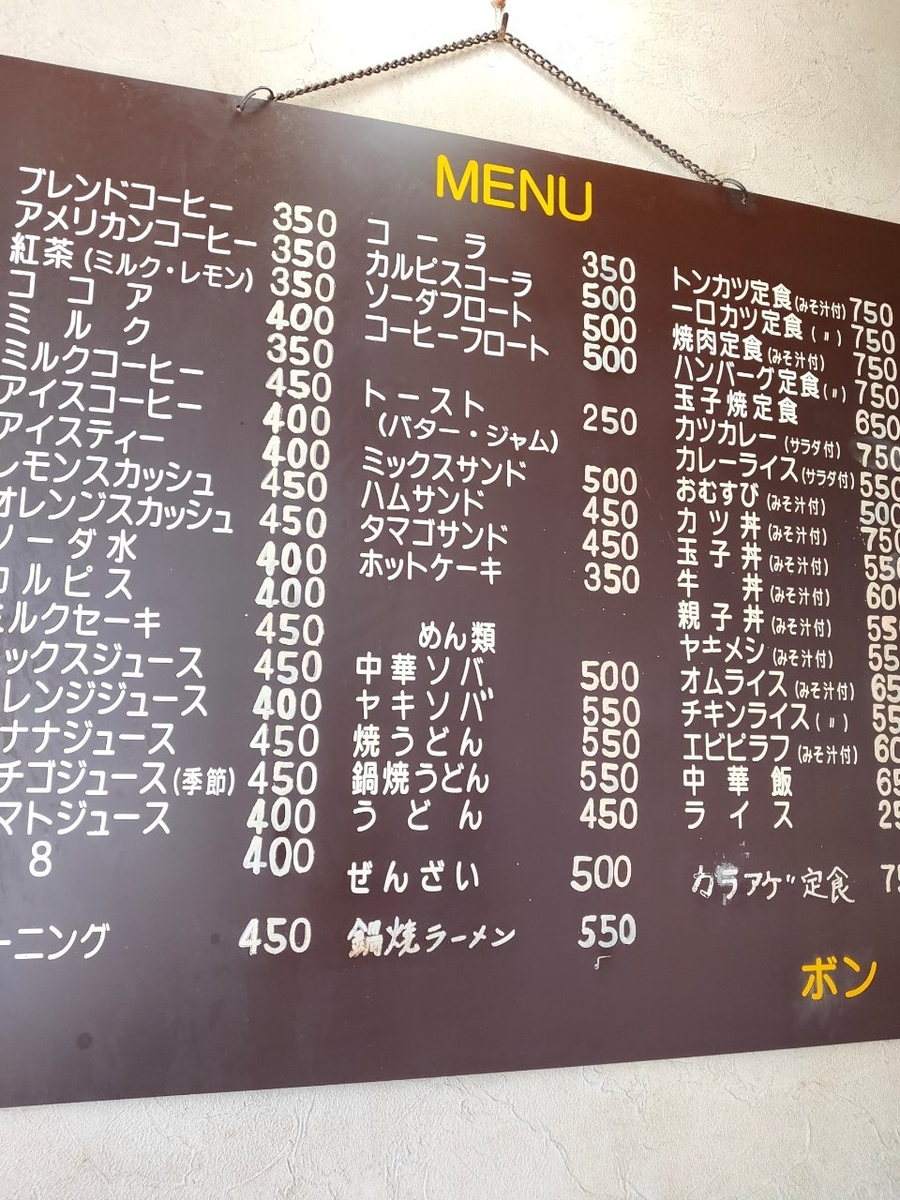 MENU
ブレンドコーヒー 350
アメリカンコーヒー 350
紅茶(ミルク・レモン) 350
コ コ ア 400
ミ ル ク 350
ミルクコーヒー 450
アイスコーヒー 400
アイスティー 400
レモンスカッシュ 450
オレンジスカッシュ 450
ソーダ水 400
カルピス 400
ミルクセーキ 450
ックスジュース 450
レンジジュース 400
ナナジュース 450
チゴジュース(季節) 450
マトジュース 400
8 400
ーニング 450
コ ー ラ 350
カルピスコーラ 500
ソーダフロート 500
コーヒーフロート 500
トースト 250
(バター・ジャム)
ミックスサンド 500
ハムサンド 450
タマゴサンド 450
ホットケーキ 350
めん類
中華ソバ 500
ヤキソバ 550
焼うどん 550
鍋焼うどん 550
う ど ん 450
ぜんざい 500
鍋焼ラーメン 550
トンカツ定食(みそ汁付) 750
一口カツ定食(〃) 750
焼肉定食(みそ汁付) 750
ハンバーグ定食(〃) 750
玉子焼定食 650
カツカレー(サラダ付) 750
カレーライス(サラダ付) 550
おむすび(みそ汁付) 500
カ ツ 丼(みそ汁付) 750
玉 子 丼(みそ汁付) 550
牛 丼(みそ汁付) 600
親 子 丼(みそ汁付) 55
ヤキメシ(みそ汁付) 55
オムライス(みそ汁付) 65
チキンライス(〃) 55
エビピラフ(みそ汁付) 60
中 華 飯 65
ラ イ ス 25
カラアゲ定食 75
ボン